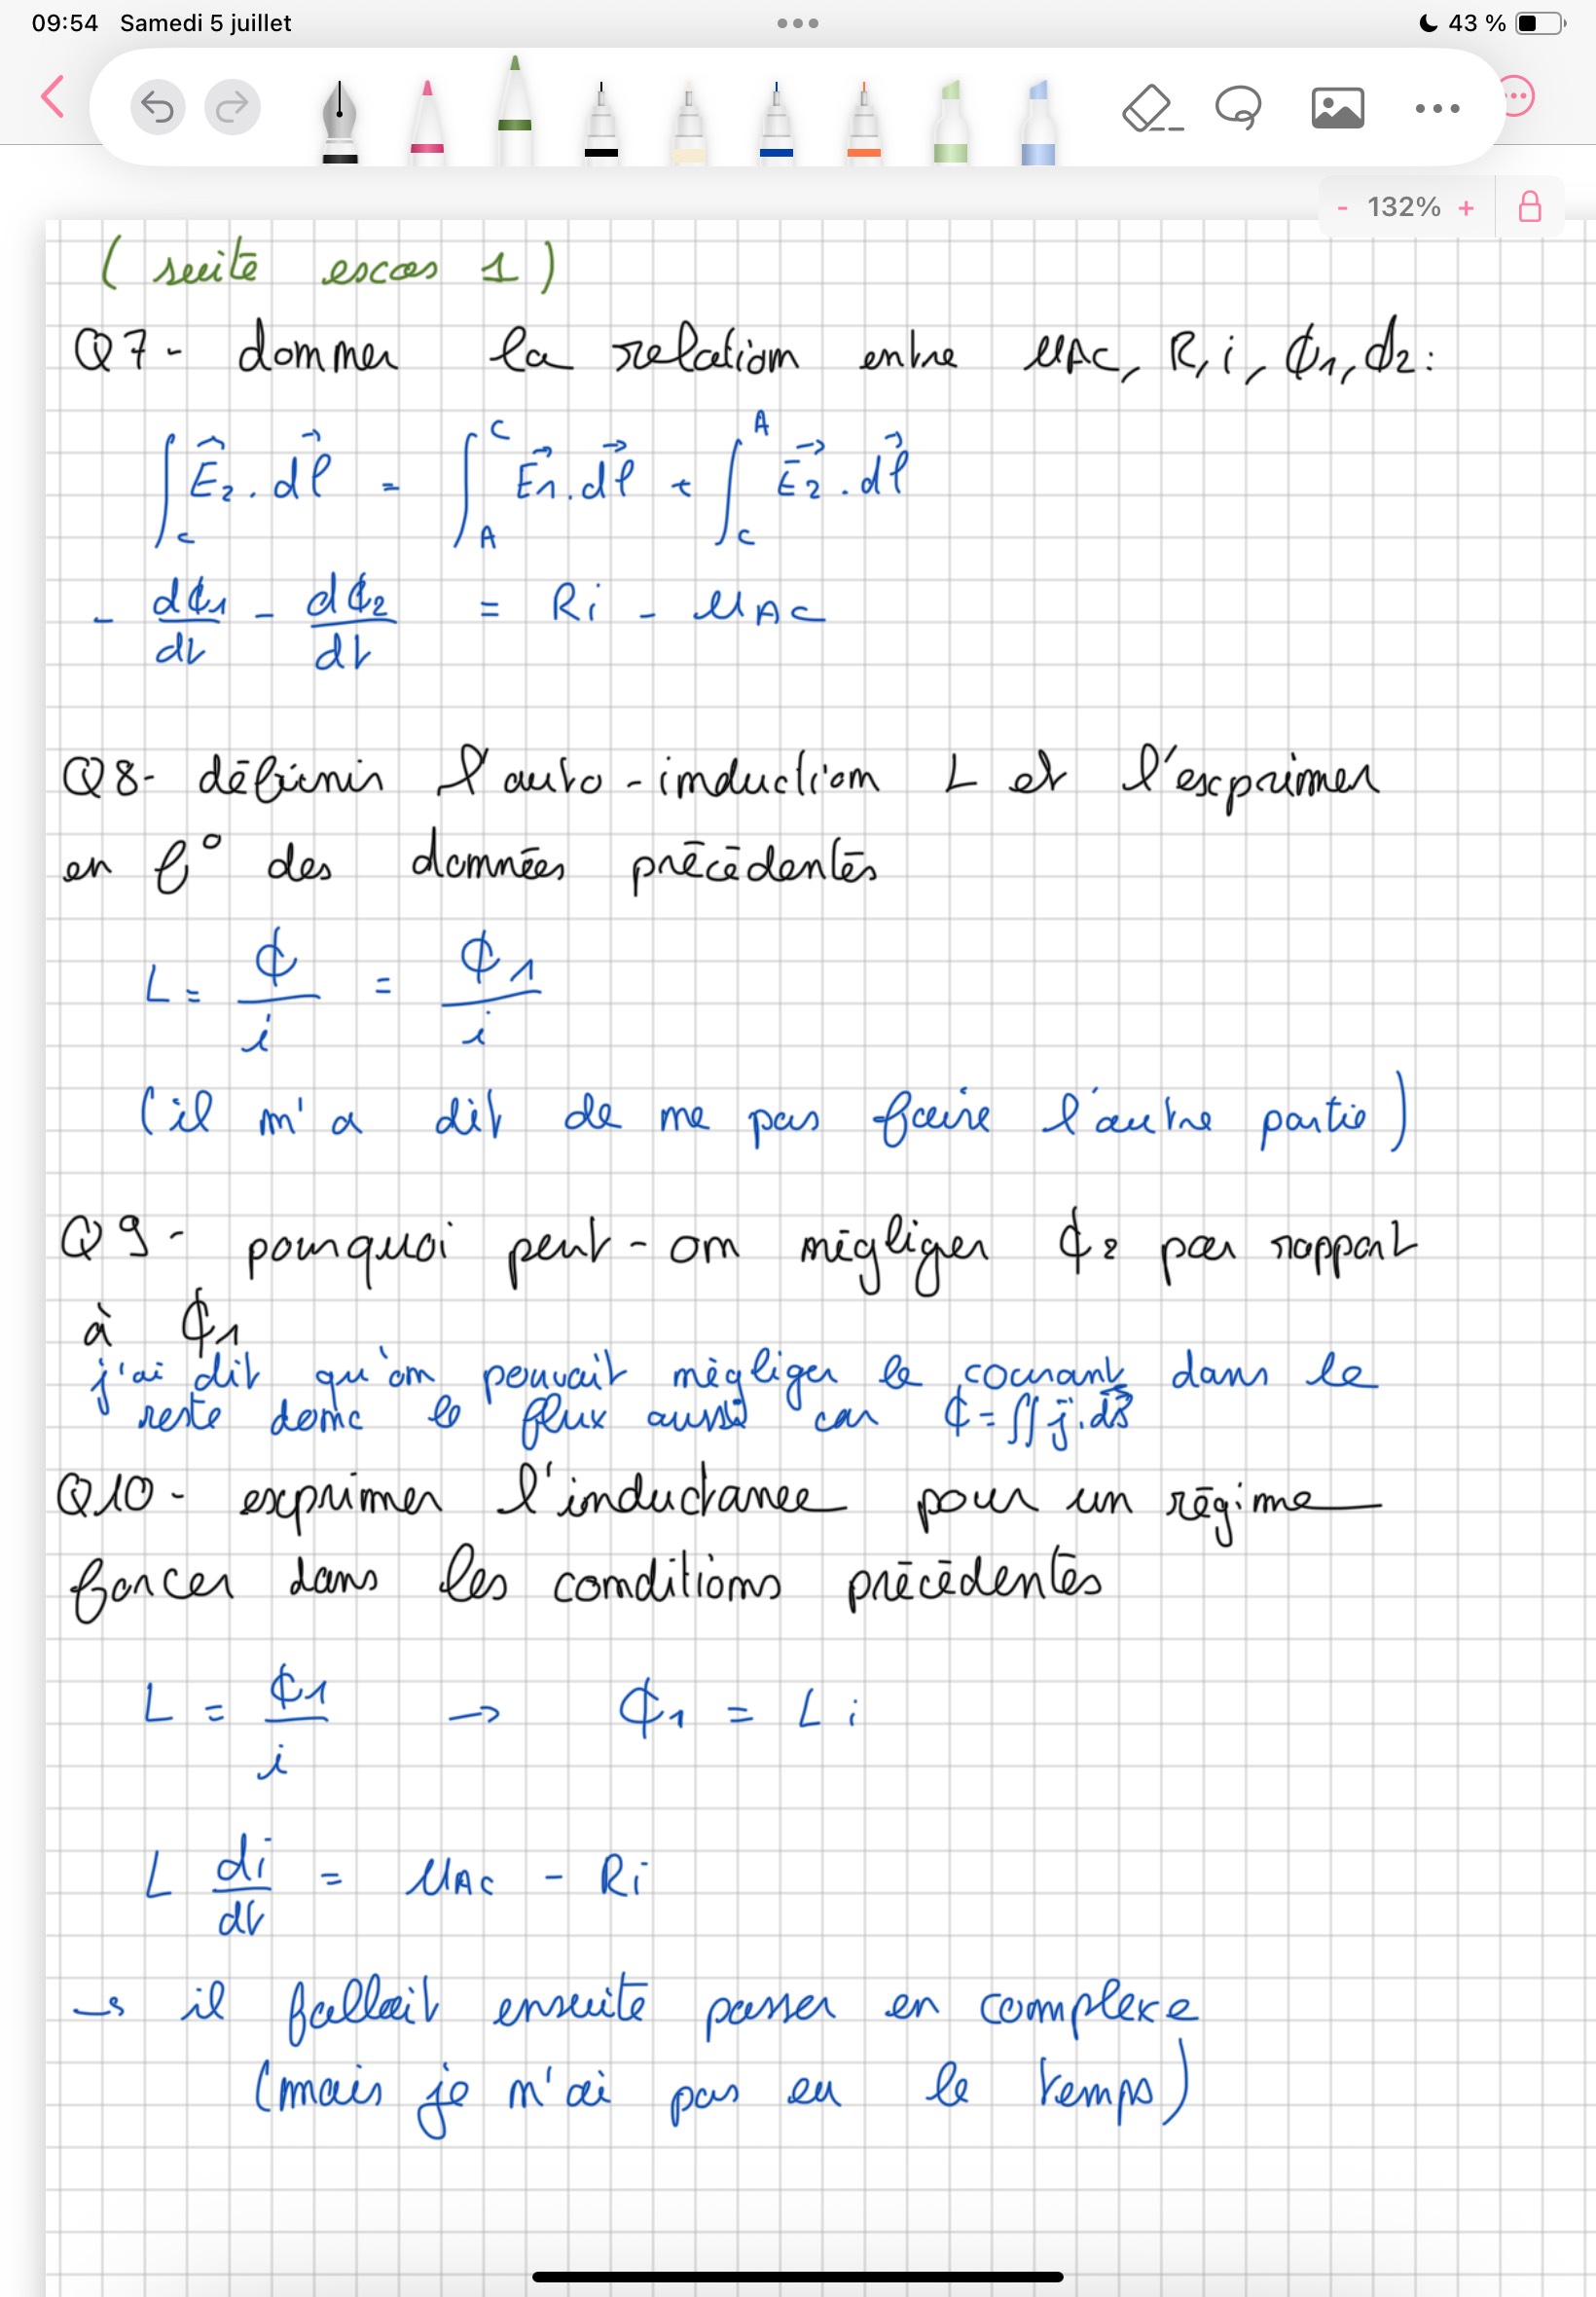 09:54 Samedi 5 juillet
43 %
- 132% +
( suite exos 1 )
Q7- donner la relation entre uAC, R, i, ϕ1, ϕ2 :
∫c E2 . dl = ∫A^C E1 . dl + ∫c^A E2 . dl
- dϕ1/dt - dϕ2/dt = Ri - uAC
Q8- définir l'auto-induction L et l'exprimer
en f° des données précédentes
L = ϕ/i = ϕ1/i
(il m'a dit de ne pas faire l'autre partie)
Q9- pourquoi peut-on négliger ϕ2 par rapport
à ϕ1
j'ai dit qu'on pouvait négliger le courant dans le
reste donc le flux aussi car ϕ = ∫∫ j . dS
Q10- exprimer l'inductance pour un régime
forcer dans les conditions précédentes
L = ϕ1/i → ϕ1 = Li
L di/dt = uAC - Ri
→ il fallait ensuite passer en complexe
(mais je n'ai pas eu le temps)